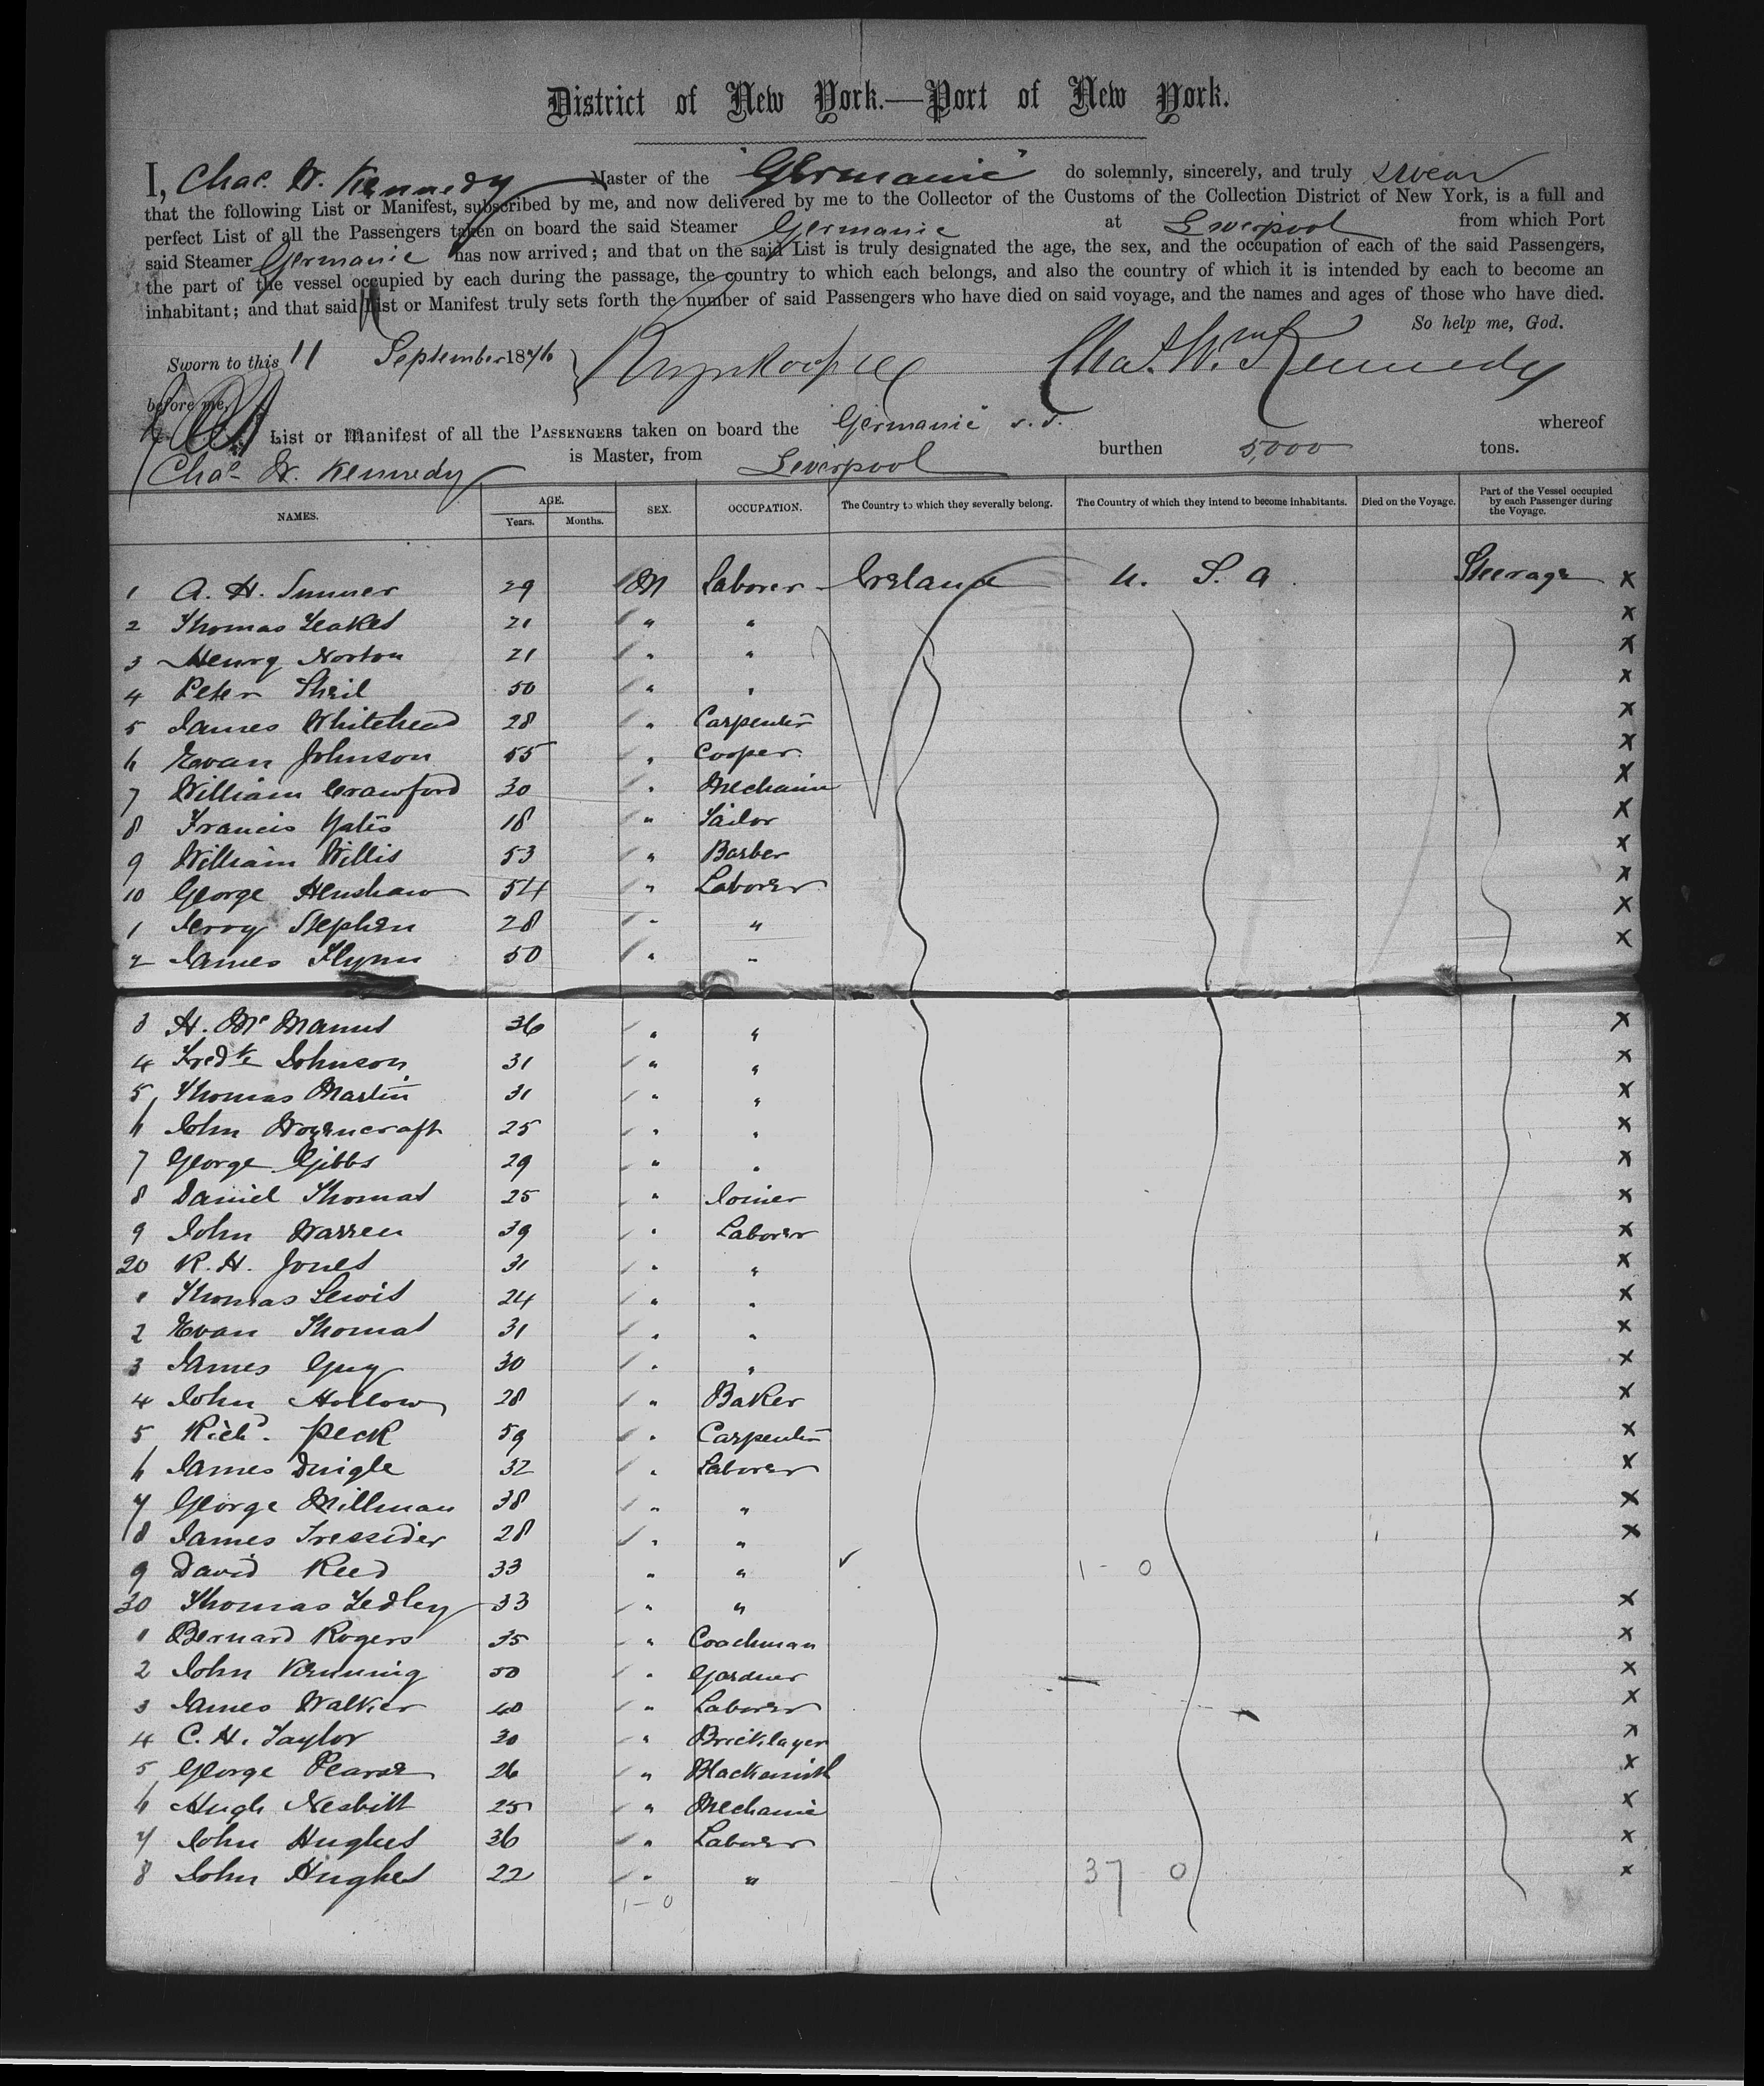 District of New York.—Port of New York.
I, Chas. W. Kennedy Master of the "Germanic" do solemnly, sincerely, and truly swear
that the following List or Manifest, subscribed by me, and now delivered by me to the Collector of the Customs of the Collection District of New York, is a full and
perfect List of all the Passengers taken on board the said Steamer Germanic at Liverpool from which Port
said Steamer Germanic has now arrived; and that on the said List is truly designated the age, the sex, and the occupation of each of the said Passengers,
the part of the vessel occupied by each during the passage, the country to which each belongs, and also the country of which it is intended by each to become an
inhabitant; and that said List or Manifest truly sets forth the number of said Passengers who have died on said voyage, and the names and ages of those who have died.
So help me, God.
Sworn to this 11 September 1876 Chas. Wm Kennedy
before me,
List or Manifest of all the PASSENGERS taken on board the "Germanic" s.s. whereof
Chas W. Kennedy is Master, from Liverpool burthen 5,000 tons.
NAMES. AGE. Years. Months. SEX. OCCUPATION. The Country to which they severally belong. The Country of which they intend to become inhabitants. Died on the Voyage. Part of the Vessel occupied by each Passenger during the Voyage.
1 A. H. Sumner 29 M Laborer Ireland U. S. A. Steerage X
2 Thomas Leakes 21 " " X
3 Henry Norton 21 " " X
4 Peter Sheil 50 " " X
5 James Whitehead 28 " Carpenter X
6 Evan Johnson 55 " Cooper X
7 William Crawford 30 " Mechanic X
8 Francis Yates 18 " Tailor X
9 William Willis 53 " Barber X
10 George Henshaw 54 " Laborer X
1 Stephen 28 " " X
2 James Flynn 50 " " X
3 H. McManus 36 " " X
4 Fredk Johnson 31 " " X
5 Thomas Martin 31 " " X
6 John Woyencraft 25 " " X
7 George Gibbs 29 " " X
8 Daniel Thomas 25 " Joiner X
9 John Warren 39 " Laborer X
20 R. H. Jones 31 " " X
1 Thomas Lewis 24 " " X
2 Evan Thomas 31 " " X
3 James Guy 30 " " X
4 John Hollow 28 " Baker X
5 Richd. Peck 59 " Carpenter X
6 James Dingle 32 " Laborer X
7 George Millman 38 " " X
8 James Tressider 28 " " X
9 David Reed 33 " " ✓ 1 - 0
30 Thomas Ledley 33 " " X
1 Bernard Rogers 35 " Coachman X
2 John Kenning 50 " Gardner X
3 James Walker 40 " Laborer X
4 C. H. Taylor 30 " Bricklayer X
5 George Pearse 26 " Blacksmith X
6 Hugh Nesbitt 25 " Mechanic X
7 John Hughes 36 " Laborer X
8 John Hughes 22 " " 37 0 X
1 - 0